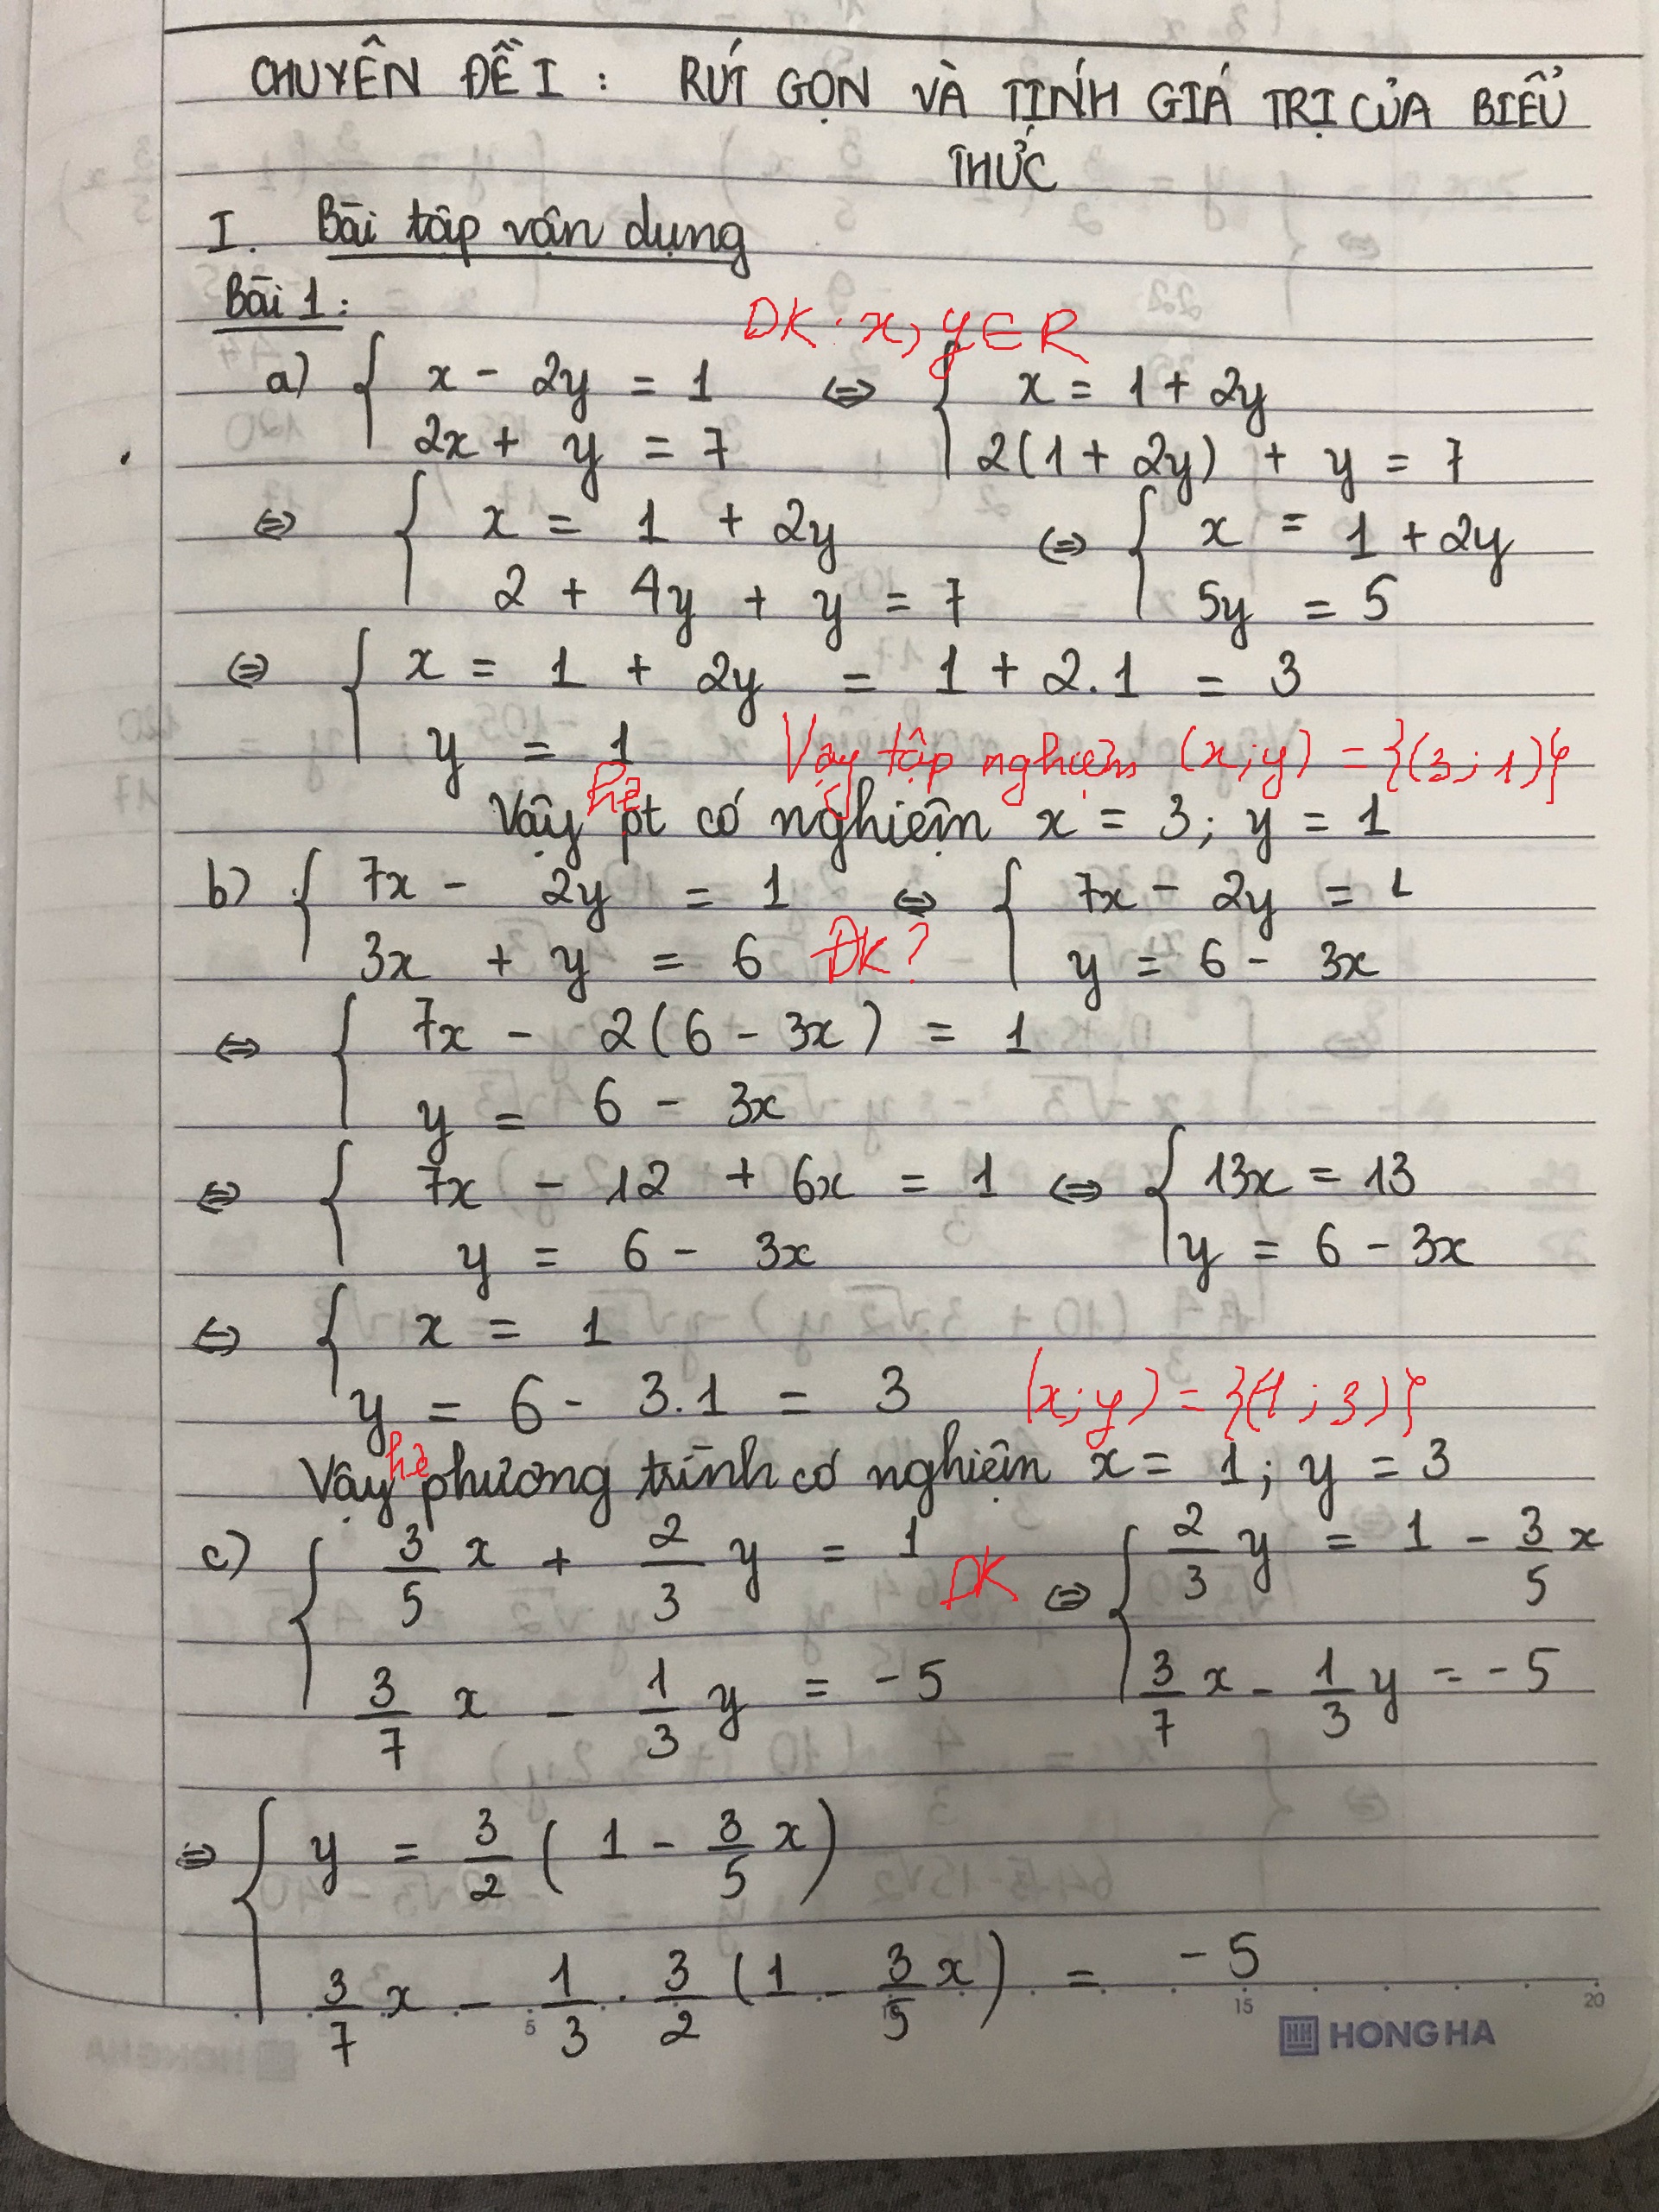 CHUYÊN ĐỀ I : RÚT GỌN VÀ TÍNH GIÁ TRỊ CỦA BIỂU
THỨC
I. Bài tập vận dụng
Bài 1:
ĐK: x, y ∈ R
a) { x - 2y = 1 ⇔ { x = 1 + 2y
2x + y = 7 2(1 + 2y) + y = 7
⇔ { x = 1 + 2y ⇔ { x = 1 + 2y
2 + 4y + y = 7 5y = 5
⇔ { x = 1 + 2y = 1 + 2.1 = 3
y = 1 Vậy tập nghiệm (x; y) = {(3; 1)}
Vậy hệ pt có nghiệm x = 3; y = 1
b) { 7x - 2y = 1 ⇔ { 7x - 2y = 1
3x + y = 6 ĐK? y = 6 - 3x
⇔ { 7x - 2(6 - 3x) = 1
y = 6 - 3x
⇔ { 7x - 12 + 6x = 1 ⇔ { 13x = 13
y = 6 - 3x y = 6 - 3x
⇔ { x = 1
y = 6 - 3.1 = 3 (x; y) = {(1; 3)}
Vậy hệ phương trình có nghiệm x = 1; y = 3
c) { 3/5 x + 2/3 y = 1 ĐK ⇔ { 2/3 y = 1 - 3/5 x
3/7 x - 1/3 y = -5 3/7 x - 1/3 y = -5
⇔ { y = 3/2 ( 1 - 3/5 x )
3/7 x - 1/3 . 3/2 (1 - 3/5 x) = -5
5 15 20
HONG HA